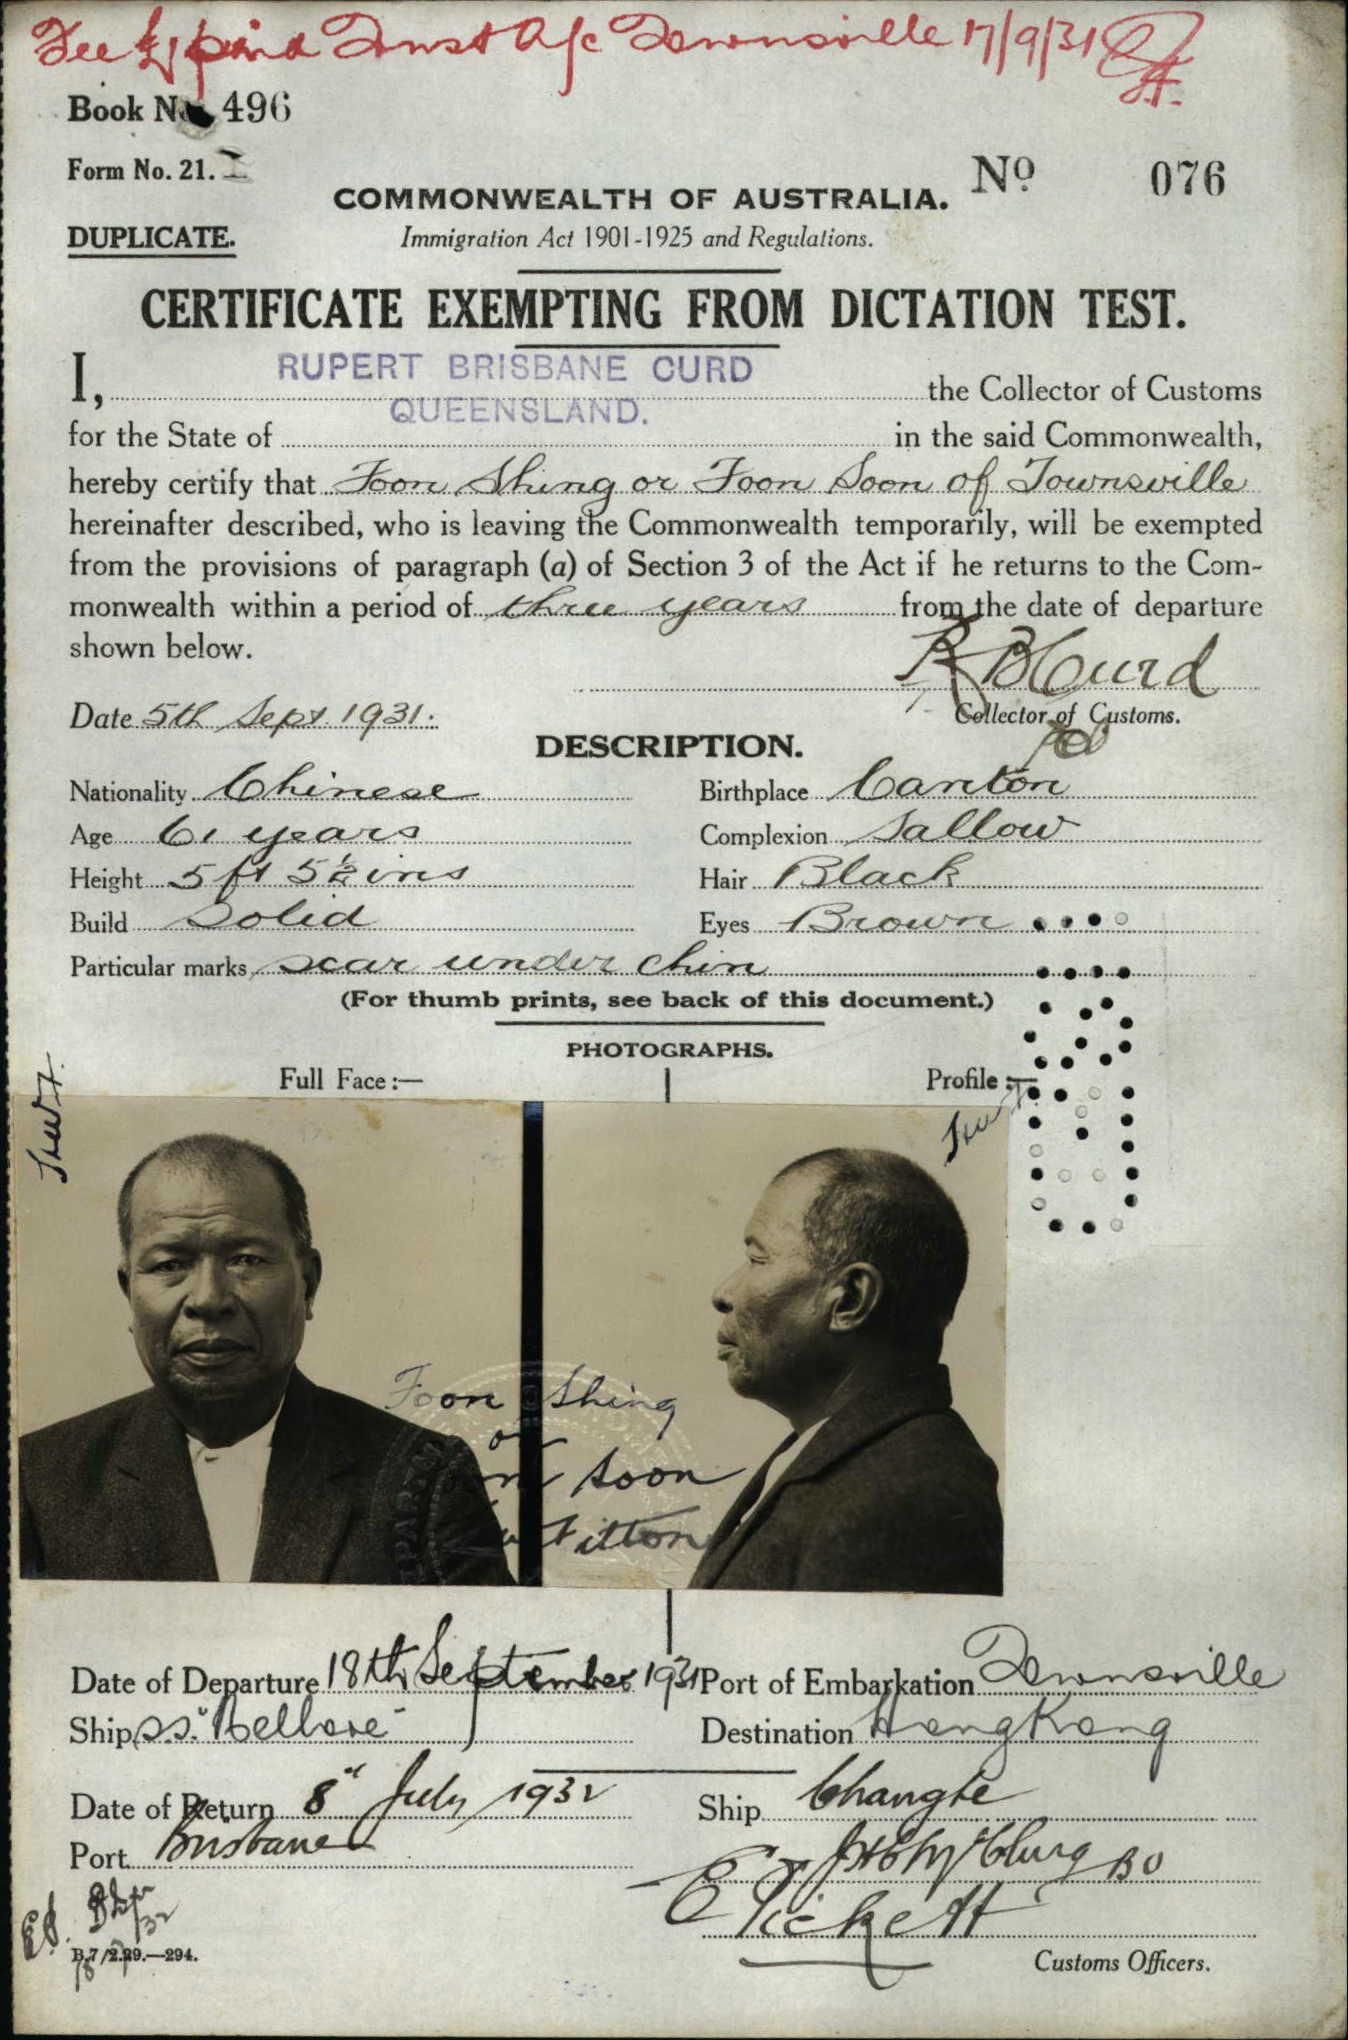 Fee £1 paid Trust A/c Townsville 17/9/31
Book No. 496
Form No. 21.
No. 076
COMMONWEALTH OF AUSTRALIA.
DUPLICATE.
Immigration Act 1901-1925 and Regulations.
CERTIFICATE EXEMPTING FROM DICTATION TEST.
I, RUPERT BRISBANE CURD the Collector of Customs
for the State of QUEENSLAND. in the said Commonwealth,
hereby certify that Foon Shing or Foon Soon of Townsville
hereinafter described, who is leaving the Commonwealth temporarily, will be exempted
from the provisions of paragraph (a) of Section 3 of the Act if he returns to the Com-
monwealth within a period of three years from the date of departure
shown below.
R B Curd
Date 5th Sept 1931.
Collector of Customs.
DESCRIPTION.
Nationality Chinese Birthplace Canton
Age 61 years Complexion Sallow
Height 5 ft 5½ ins Hair Black
Build Solid Eyes Brown
Particular marks scar under chin
(For thumb prints, see back of this document.)
PHOTOGRAPHS.
Full Face :— Profile :—
Foon Shing
or
Soon
Date of Departure 18th September 1931 Port of Embarkation Townsville
Ship s.s. "Nellore" Destination HongKong
Date of Return 8th July 1932 Ship Changte
Port Brisbane
B.7/2.29.—294.
Customs Officers.